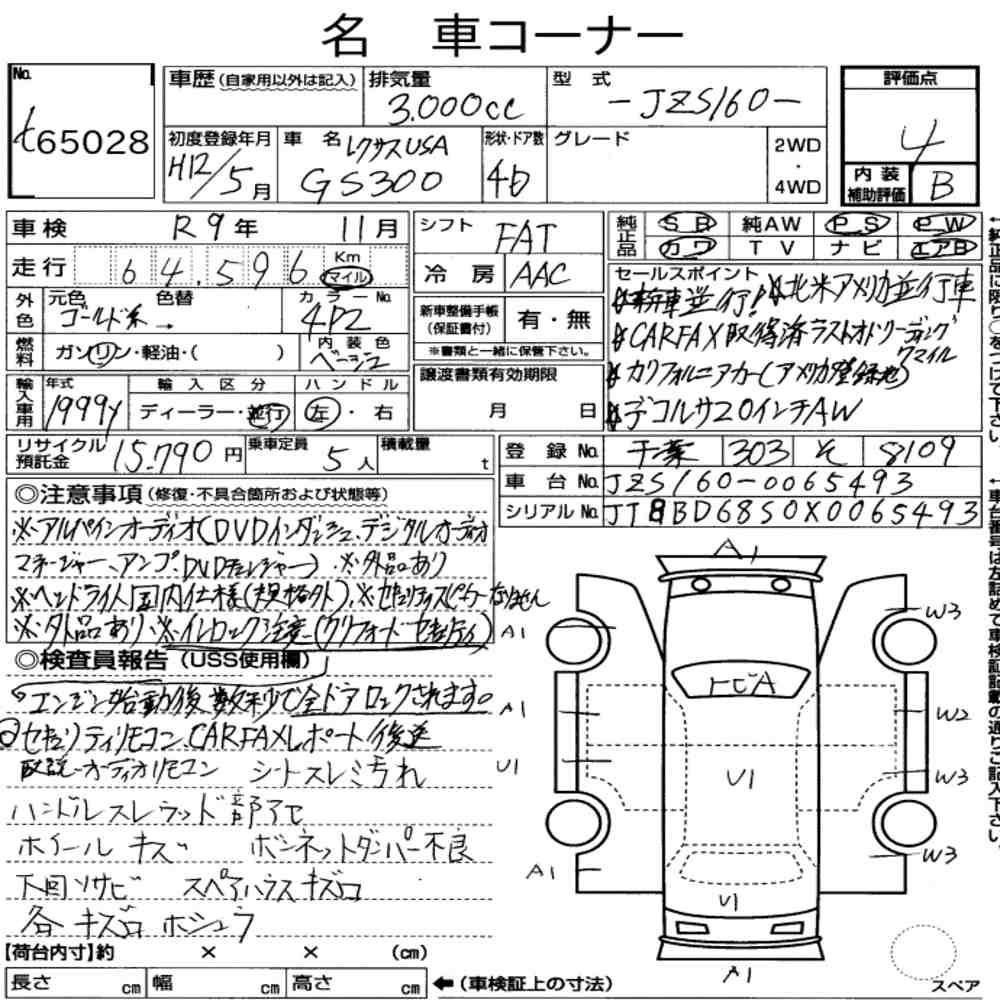 名 車コーナー
No. 65028
車歴(自家用以外は記入) 排気量 3.000cc 型式 -JZS160- 評価点 4
初度登録年月 H12/5月 車名 レクサスUSA GS300 形状・ドア数 4D グレード 2WD・4WD 内装補助評価 B
車検 R9年 11月 シフト FAT 純正品 SB 純AW PS PW
カワ TV ナビ エアB
走行 64.596 Km マイル 冷房 AAC
外色 元色 ゴールド系 → 色替 カラーNo. 4P2
新車整備手帳(保証書付) 有・無
※書類と一緒に保管下さい。
燃料 ガソリン・軽油・( ) 内装色 ベージュ
輸入車用 年式 1999y 輸入区分 ディーラー・並行 ハンドル 左・右
譲渡書類有効期限 月 日
セールスポイント
新車並行! 北米アメリカ並行車
CARFAX取得済ラストオドリーディングマイル
カリフォルニアカー(アメリカ登録地)
デコルサ20インチAW
リサイクル預託金 15.790円 乗車定員 5人 積載量 t
登録No. 千葉 303 そ 8109
車台No. JZS160-0065493
シリアルNo. JT8BD68S0X0065493
←純正品に限り○をつけて下さい。
←車台番号は左詰めで車検証記載の通りご記入下さい。
◎注意事項(修復・不具合箇所および状態等)
※アルパインオーディオ(DVDインダッシュ、デジタルオーディオ
マネージャー、アンプ、DVDチェンジャー)、※外品あり
※ヘッドライト国内仕様(規格外)、※セキュリティスピーカーなりません
※外品あり、※イモロック注意(クリフォードセキュリティ)
◎検査員報告(USS使用欄)
。エンジン始動後数秒で全ドアロックされます。
@セキュリティリモコン、CARFAXレポート後送
取説 オーディオリモコン シートスレミ汚れ
ハンドルスレ ウッド部アセ
ホイールキズ ボンネットダンパー不良
下回りサビ スペアハウスキズ凹
各キズ凹ホシュウ
【荷台内寸】約 × × (cm)
長さ cm 幅 cm 高さ cm ←(車検証上の寸法)
A1
W3
A1
トビA
A1
W2
U1
U1
W3
W3
A1
U1
A1
スペア